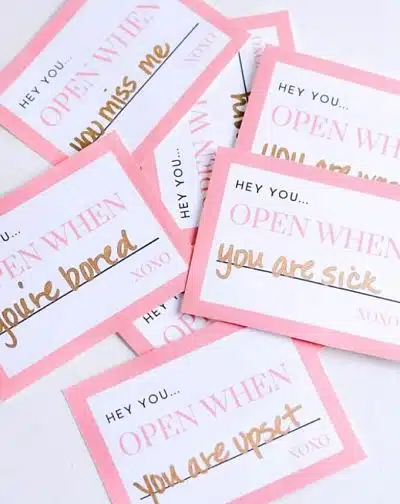 HEY YOU...
OPEN WHEN
you miss me
XOXO
HEY YOU...
OPEN WHEN
you are
HEY YOU...
HEY YOU...
OPEN WHEN
you are sick
XOXO
U...
PEN WHEN
you're bored
XOXO
HEY YOU...
OPEN WHEN
you are upset
XOXO